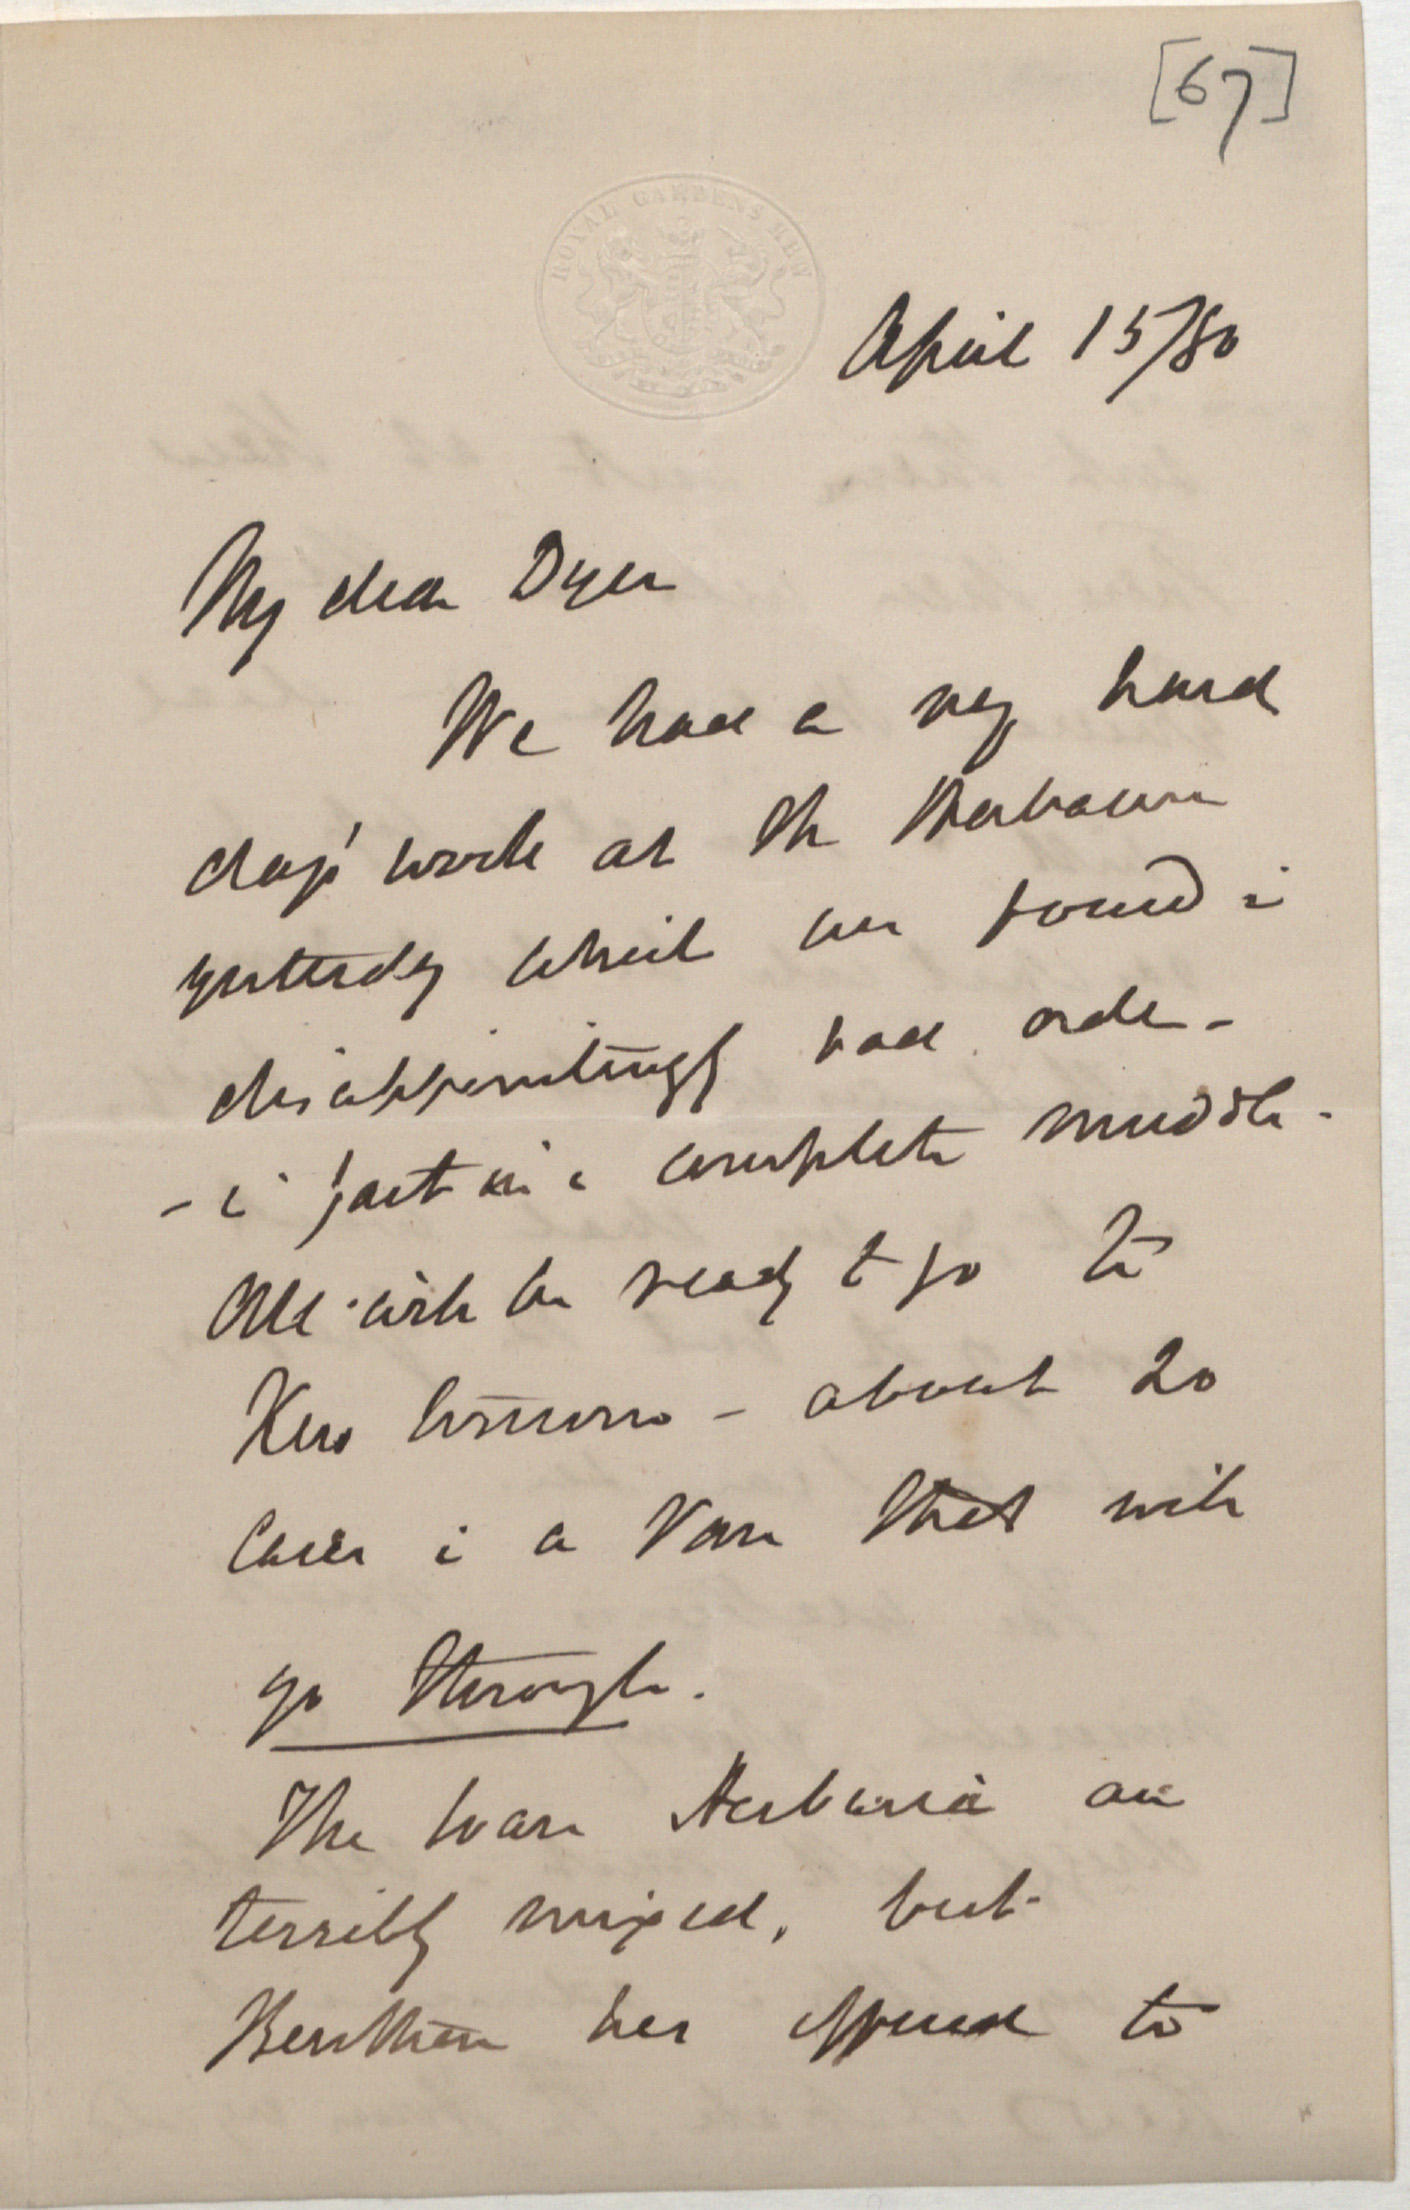 [67]
ROYAL GARDENS KEW
April 15/80
My dear Dyer
We had a very hard
day's work at the Herbarium
yesterday which we found in
disappointingly bad order -
- in fact in a complete muddle -
All will be ready to go to
Kew tomorrow - about 20
Cases in a Van that will
go through.
The Herbaria are
terribly mixed, but
Bentham has offered to